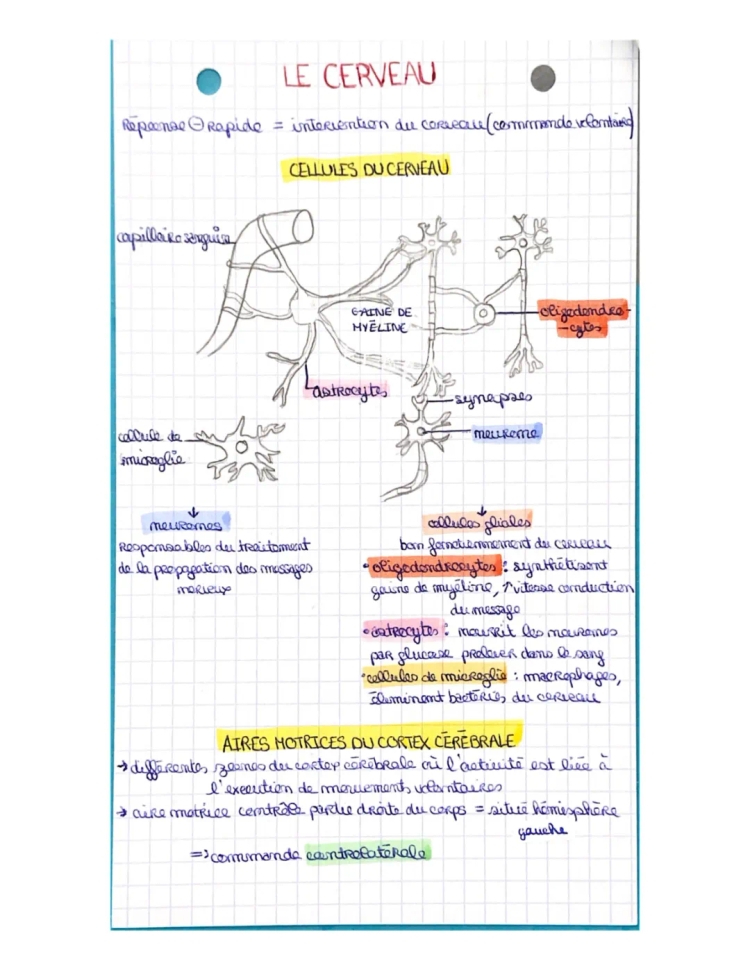 LE CERVEAU
Réponse ⊖ Rapide = intervention du cerveau (commande volontaire)
CELLULES DU CERVEAU
capillaire sanguin
GAINE DE
MYÉLINE
oligodendro-
-cytes
astrocytes
synapses
cellule de
microglie
neurone
neurones
Responsables du traitement
de la propagation des messages
nerveux
cellules gliales
bon fonctionnement du cerveau
• oligodendrocytes : synthétisent
gaine de myéline, ↑ vitesse conduction
du message
• astrocytes : nourrit les neurones
par glucose prélever dans le sang
• cellules de microglie : macrophages,
éliminent bactéries du cerveau
AIRES MOTRICES DU CORTEX CÉRÉBRALE
→ différentes zones du cortex cérébrale où l'activité est liée à
l'execution de mouvements volontaires
→ aire motrice contrôle partie droite du corps = situé hémisphère
gauche
=> commande controlatérale